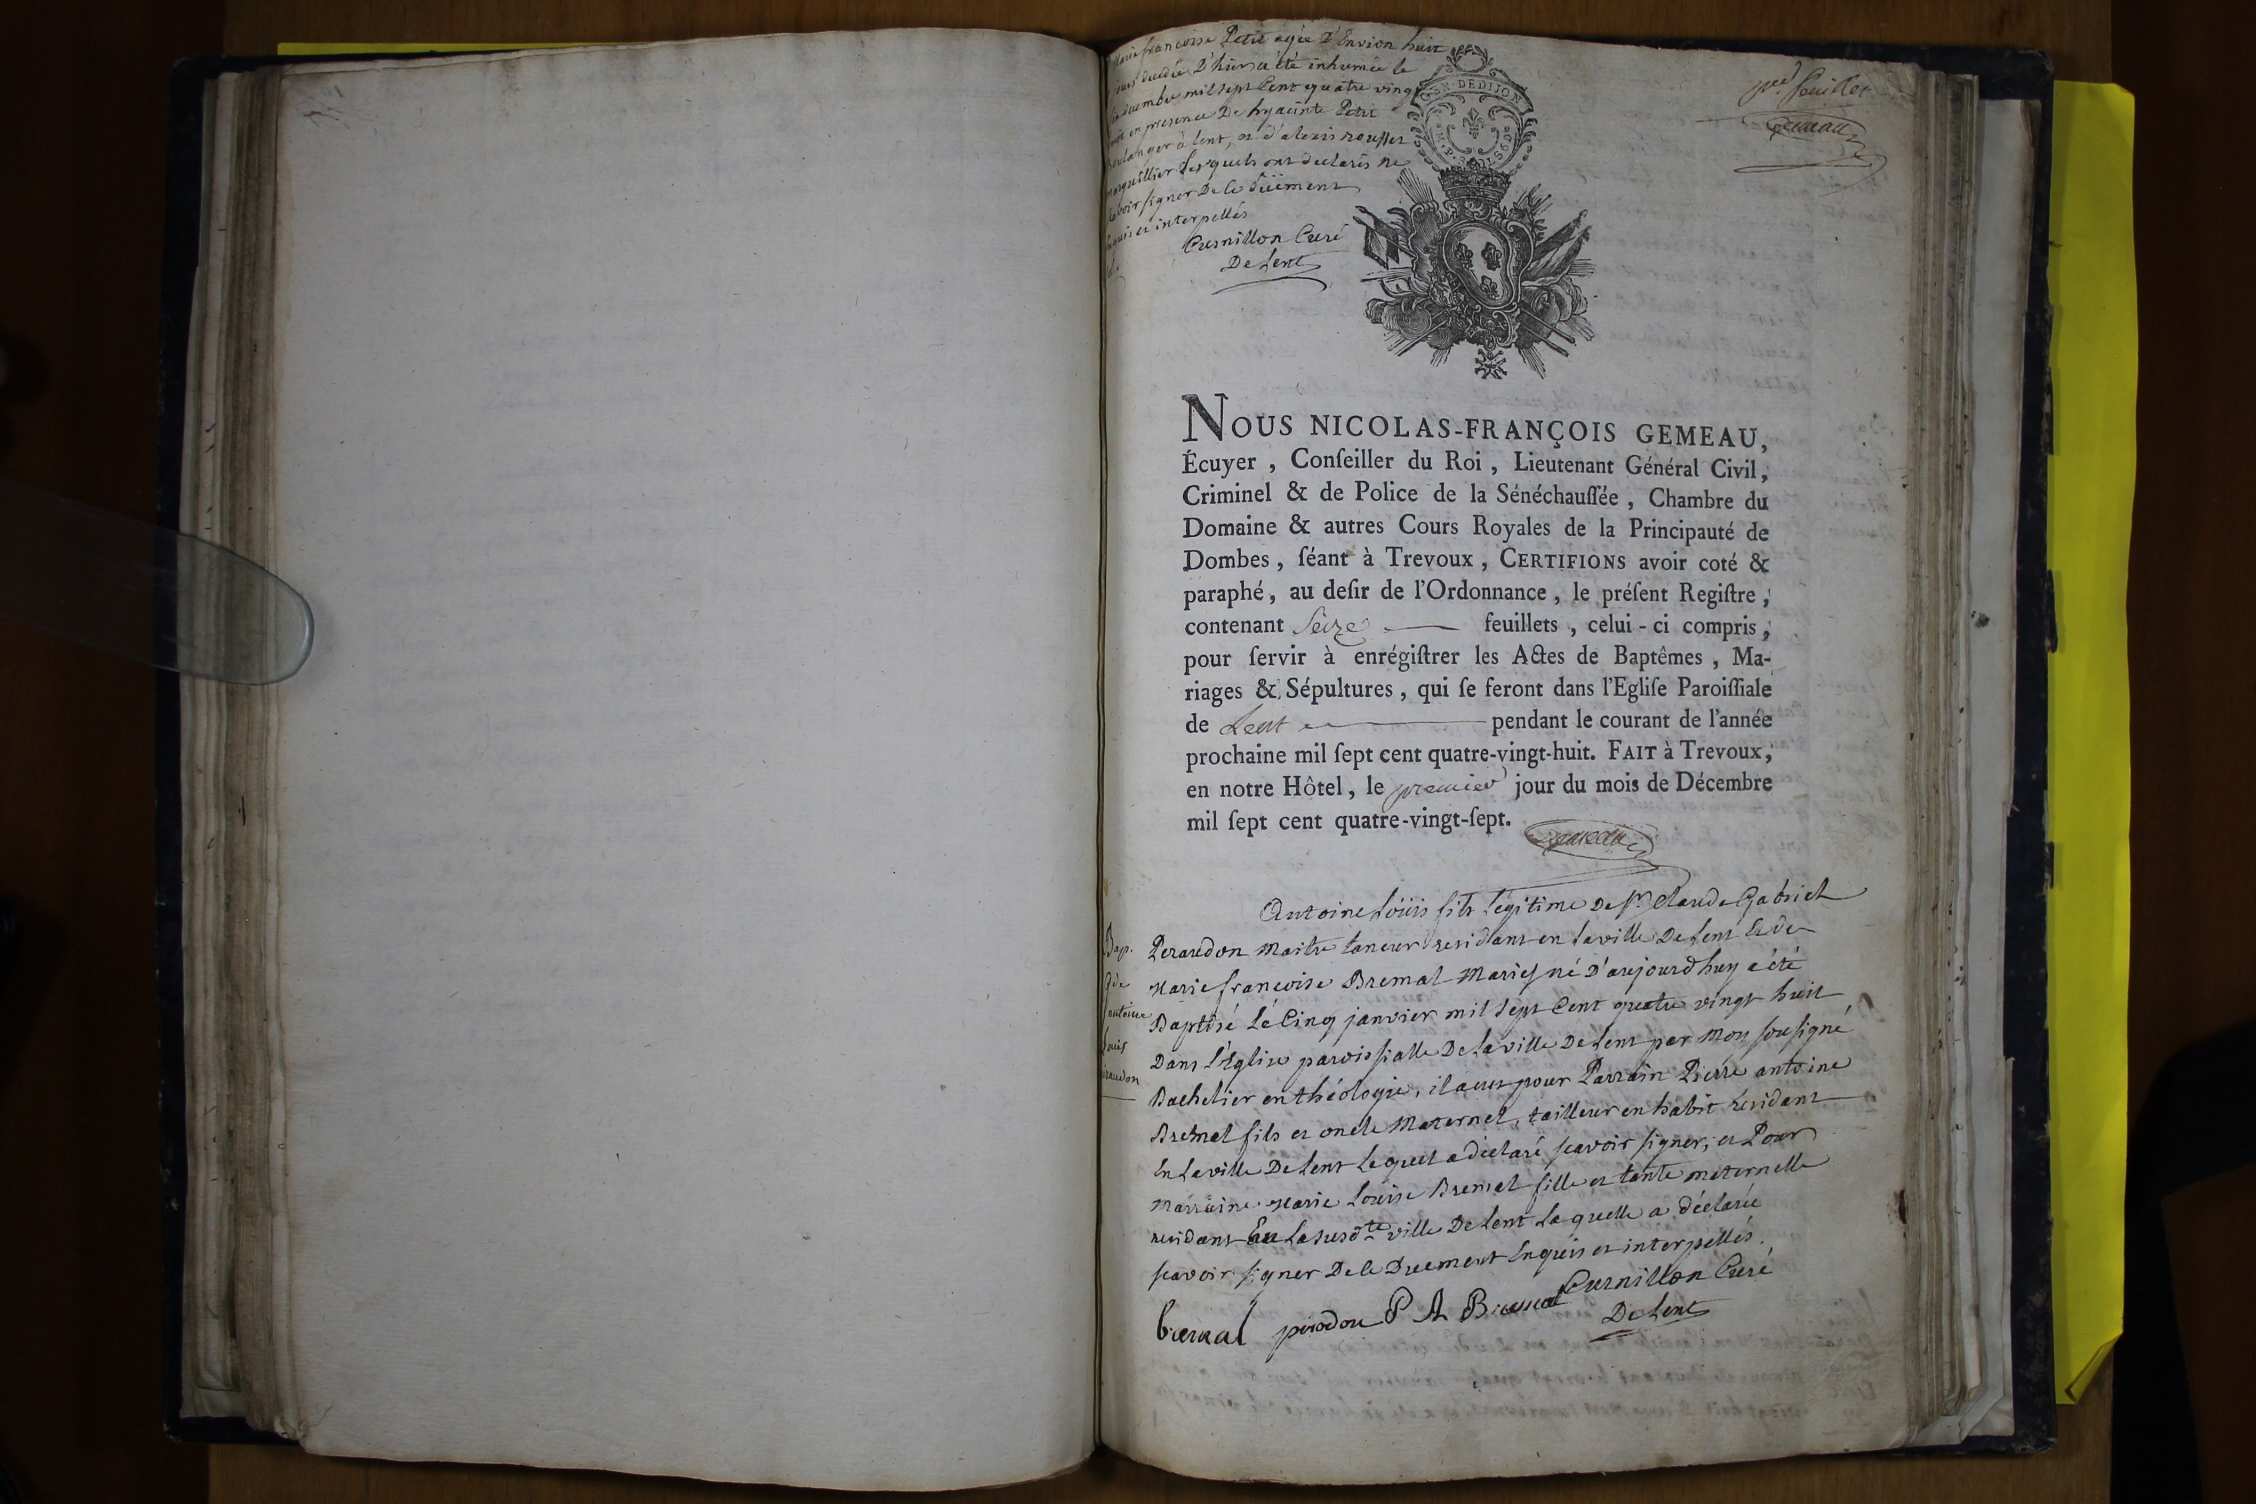 Marie francoise Petit agée D'Environ huit
jours decedée D'hier a été inhumée le
decembre mil sept Cent quatre vingt
en presence De hyacinte Petit
boulanger à Lent, et d'alexis rousset
marguillier Lesquels ont declarés ne
sçavoir signer De Ce düement
Enquis et interpellés
Curnillon Curé
De Lent
GEN. DE DIJON
pr.er feuillet
Gemeau
NOUS NICOLAS-FRANÇOIS GEMEAU,
Écuyer , Conſeiller du Roi , Lieutenant Général Civil,
Criminel & de Police de la Sénéchauſſée , Chambre du
Domaine & autres Cours Royales de la Principauté de
Dombes , ſéant à Trevoux , CERTIFIONS avoir coté &
paraphé , au deſir de l'Ordonnance , le préſent Regiſtre ,
contenant Seize feuillets , celui-ci compris ,
pour ſervir à enrégiſtrer les Actes de Baptêmes , Ma-
riages & Sépultures , qui ſe feront dans l'Egliſe Paroiſſiale
de Lent pendant le courant de l'année
prochaine mil ſept cent quatre-vingt-huit. FAIT à Trevoux ,
en notre Hôtel , le premier jour du mois de Décembre
mil ſept cent quatre-vingt-ſept.
Gemeau
Bap.
d'de
antoine
Louis
peraudon
Antoine Loüis fils Légitime De Sr. Claude Gabriel
Peraudon Maitre taneur residant en la ville De Lent Et de
Marie francoise Bremal Mariés né D'aujourdhuy a été
Baptisé Le Cinq janvier mil Sept Cent quatre vingt huit
Dans L'Eglise paroissialle De la ville De Lent par Moy sousigné
Bachelier en théologie, il a eut pour Parrain Pierre antoine
Bremal fils et oncle Maternel, tailleur en habit Residant
En La ville De Lent Lequel a déclaré scavoir signer, et Pour
Marraine Marie Louise Bremal fille et tante maternelle
residant En La susd.te ville De Lent Laquelle a déclarée
scavoir signer De Ce Duement Enquis et interpellés.
bremal perodon P A Bremal Curnillon Curé
De Lent